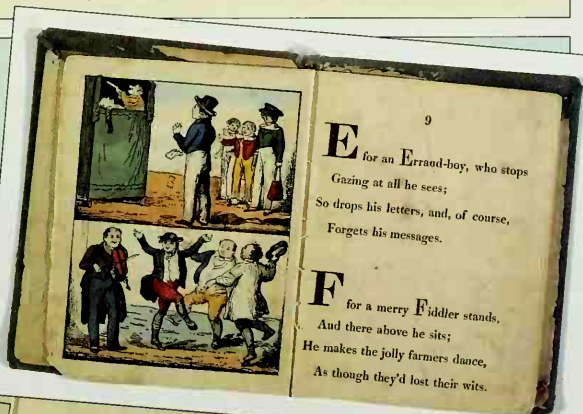 9
E for an Erraud-boy, who stops
Gazing at all he sees;
So drops his letters, and, of course,
Forgets his messages.
F for a merry Fiddler stands.
And there above he sits;
He makes the jolly farmers dance,
As though they'd lost their wits.